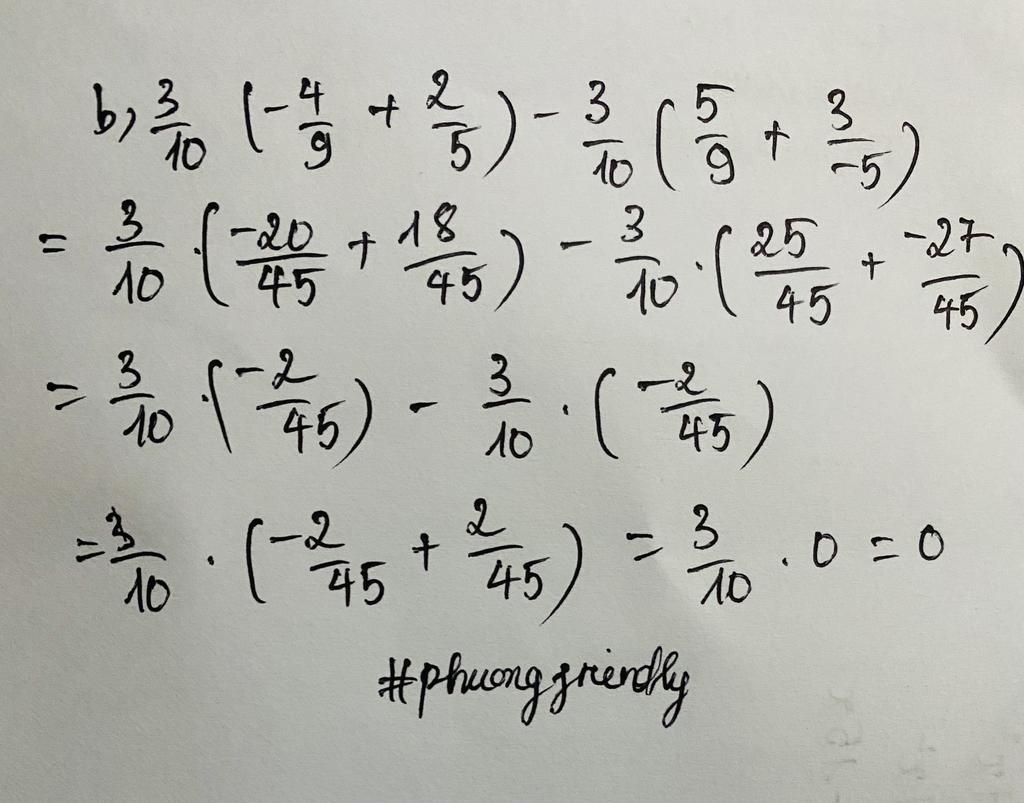 b, 3/10 (-4/9 + 2/5) - 3/10 (5/9 + 3/-5)
= 3/10 · (-20/45 + 18/45) - 3/10 · (25/45 + -27/45)
= 3/10 · (-2/45) - 3/10 · (-2/45)
= 3/10 · (-2/45 + 2/45) = 3/10 · 0 = 0
#phuongfriendly